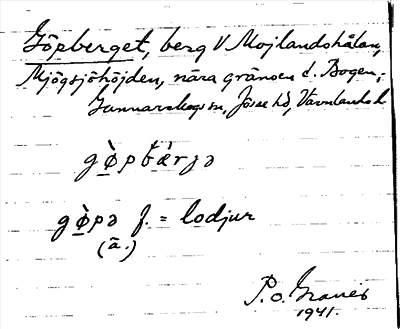 Göpberget, berg V Mojlandshålan,
Mjögsjöhöjden, nära gränsen t. Bogen,
Gunnarskogs sn, Jösse hd, Värmlands l.
gø̀pbǽrjə
gø̀pə f. = lodjur
(ä.)
P. o.
1941.